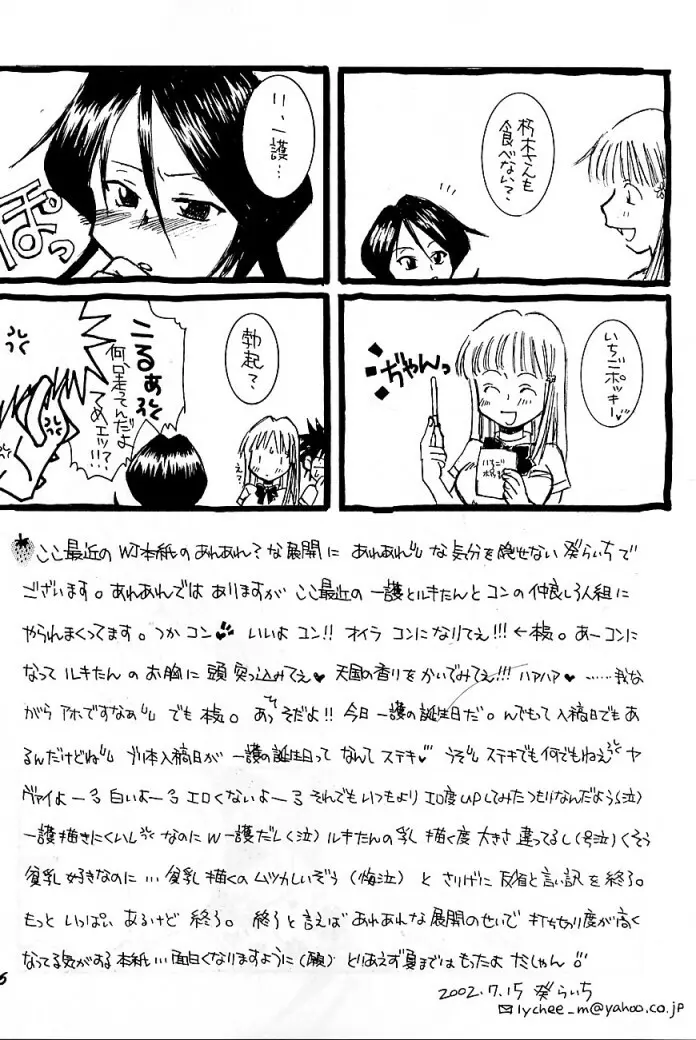 朽木さんも
食べない?
いちごポッキー♥
ぢゃんっ
いちご
一護…
ぽっ
勃起?
こるぁ
何、走ってんだよ
てめェッ!!?
え?
ここ最近の WJ本紙の あれあれ?な展開に あれあれ な気分を隠せない 癸らいちで
ございます。あれあれでは ありますが ここ最近の 一護とルキたんと コンの 仲良し3人組に
やられまくってます。つか コン♥ いいよ コン!! オイラ コンに なりてぇ!!! ←本気。あーコンに
なって ルキたんの お胸に 頭 突っ込みてぇ♥ 天国の香りを かいでみてぇ!!! ハアハア♥ ……我な
がら アホですなぁ でも 本気。あっそうだよ!! 今日 一護の誕生日だ。んでもって 入稿日でもあ
るんだけどね ブリ本入稿日が 一護の誕生日って なんて ステキ♥ うそ ステキでも何でもねぇ ヤ
ヴァイよーー 白いよーー エロくないよーー それでも いつもより エロ度UPしてみた つもりなんだよう(泣)
一護 描きにくいし なのに W一護だし(泣) ルキたんの 乳 描く度 大きさ 違ってるし(号泣) くそう
貧乳 好きなのに… 貧乳 描くの ムツカしいぞう (悔泣) と さりげに 反省と言い訳を 終了。
もっと いっぱい あるけど 終了。 終了 と言えば あれあれな 展開の せいで 打ちきり度が高く
なってる気がする 本紙… 面白くなりますように(願) とりあえず 夏までは もったよ だしゃん
2002.7.15 癸らいち
lychee_m@yahoo.co.jp